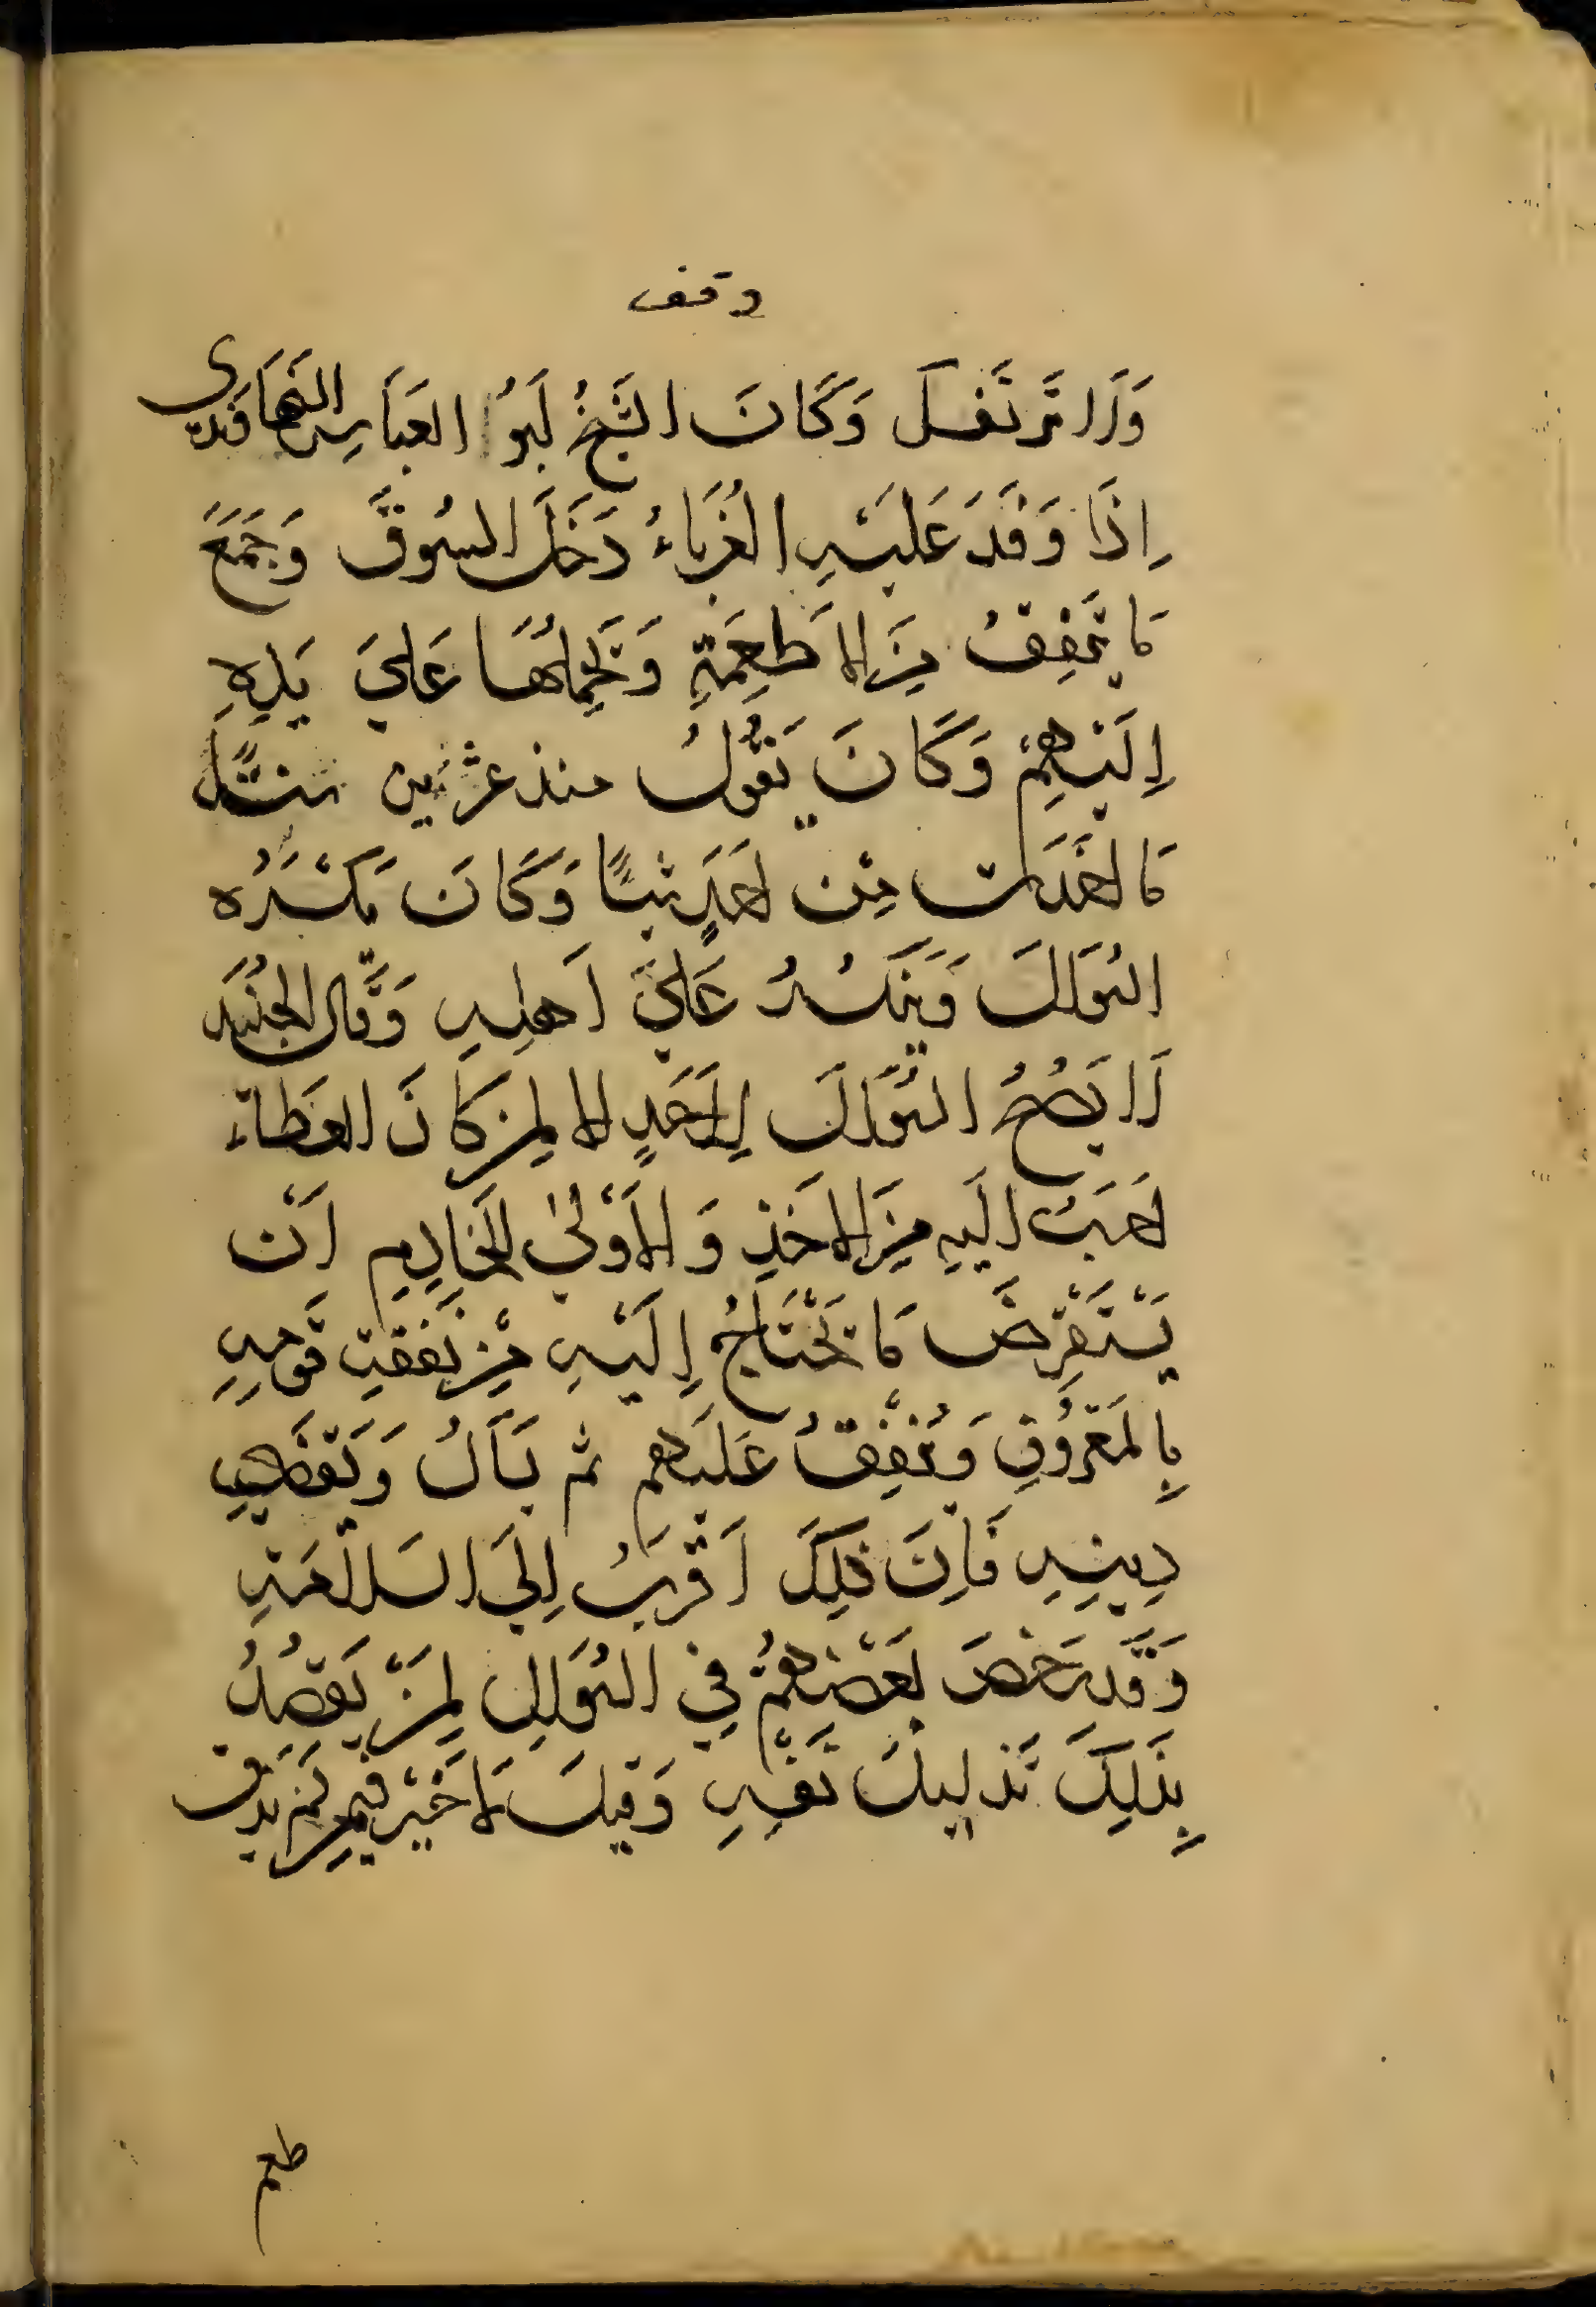 وقف
وَلَا تَرَ نَفْسَكَ وَكَانَ الشَّيْخُ اَبُو العَبَاسِ النَهَاوَندى
اِذَا وَفَدَ عَلَيْهِ الغُرَبَاءُ دَخَلَ السُوقَ وَجَمَعَ
مَا يَتَّفِقُ مِنَ الاَطعِمَةِ وَيَحْمِلُهَا عَلَي يَدِهِ
اِلَيْهِمْ وَكَانَ يَقُولُ منذ عشرين سنة
مَا اخَذت مِنْ اَحَدٍ شَيْئًا وَكَانَ يَكْرَهُ
السُوَالَ وَيُنكِرُ عَلَيَ اَهلِهِ وَقَال الجُنَيد
لَا يَصُحُ السُّوَالُ لِاَحَدٍ الا لِمن كَانَ العَطاء
اَحَبَّ اِلَيهِ مِنَ الاخَذِ وَالاَوْلىٰ لِلخَادِمِ اَنْ
يَسْتَقْرِضَ مَا يَحْتَاجُ اِلَيْهِ مِنْ نَفَقَةِ قَومِهِ
بِالمَعْرُوفِ وَيُنْفِقُ عَلَيهم ثم يَسْأَلُ وَيَقضِي
دِينِهِ فَاِنَ ذلِكَ اَقْرَبُ اِلَى السَلامَةِ
وَقَد رَخصَ بَعْضهُمْ فِي السُوَالِ لِمَنْ يَقْصُدُ
بِذَلِكَ تَذليلَ نَفْسِهِ وَقيلَ لَا خَيْرَ فيمن لَم يذق
طعم